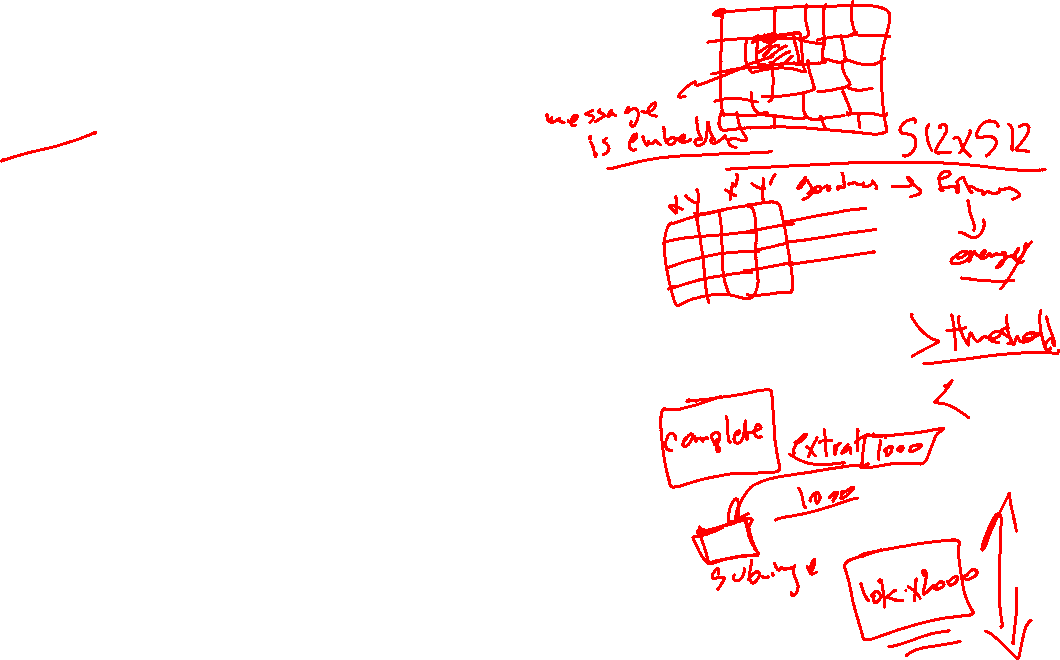 message
is embedded
512x512
x y x' y' →
energy
> threshold
<
complete
extrat 1000
1000
subimge
10k x 2000